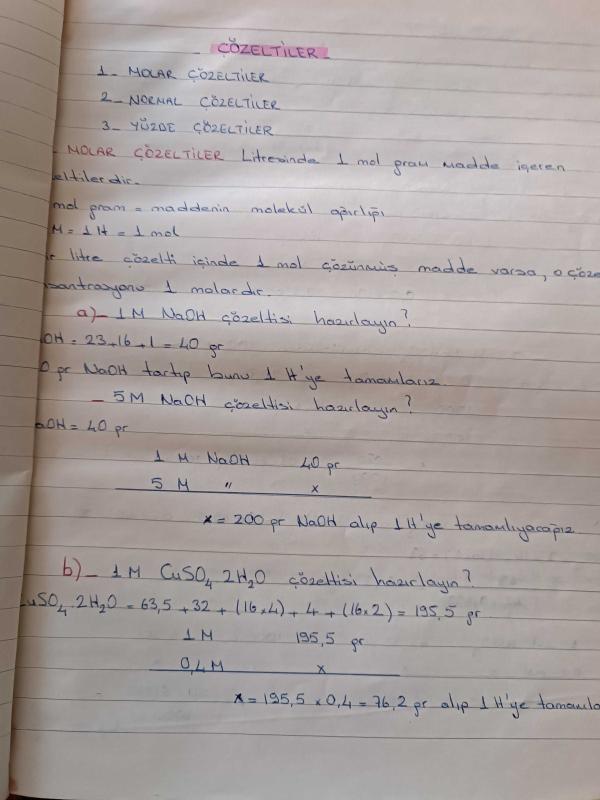 - ÇÖZELTİLER -
1- MOLAR ÇÖZELTİLER
2- NORMAL ÇÖZELTİLER
3- YÜZDE ÇÖZELTİLER
- MOLAR ÇÖZELTİLER Litresinde 1 mol gram madde içeren
eltilerdir.
mol gram = maddenin molekül ağırlığı
M = 1 lt = 1 mol
litre çözelti içinde 1 mol çözünmüş madde varsa, o çöze
santrasyonu 1 molardır.
a)- 1 M NaOH çözeltisi hazırlayın?
OH = 23+16+1 = 40 gr
0 gr NaOH tartıp bunu 1 lt'ye tamamlarız.
- 5 M NaOH çözeltisi hazırlayın?
aOH = 40 gr
1 M NaOH 40 gr
5 M " x
x = 200 gr NaOH alıp 1 lt'ye tamamlıyacağız
b)- 1 M CuSO₄ 2H₂O çözeltisi hazırlayın?
CuSO₄.2H₂O = 63,5 + 32 + (16x4) + 4 + (16x2) = 195,5 gr
1 M 195,5 gr
0,4 M x
x = 195,5 x 0,4 = 76,2 gr alıp 1 lt'ye tamamla